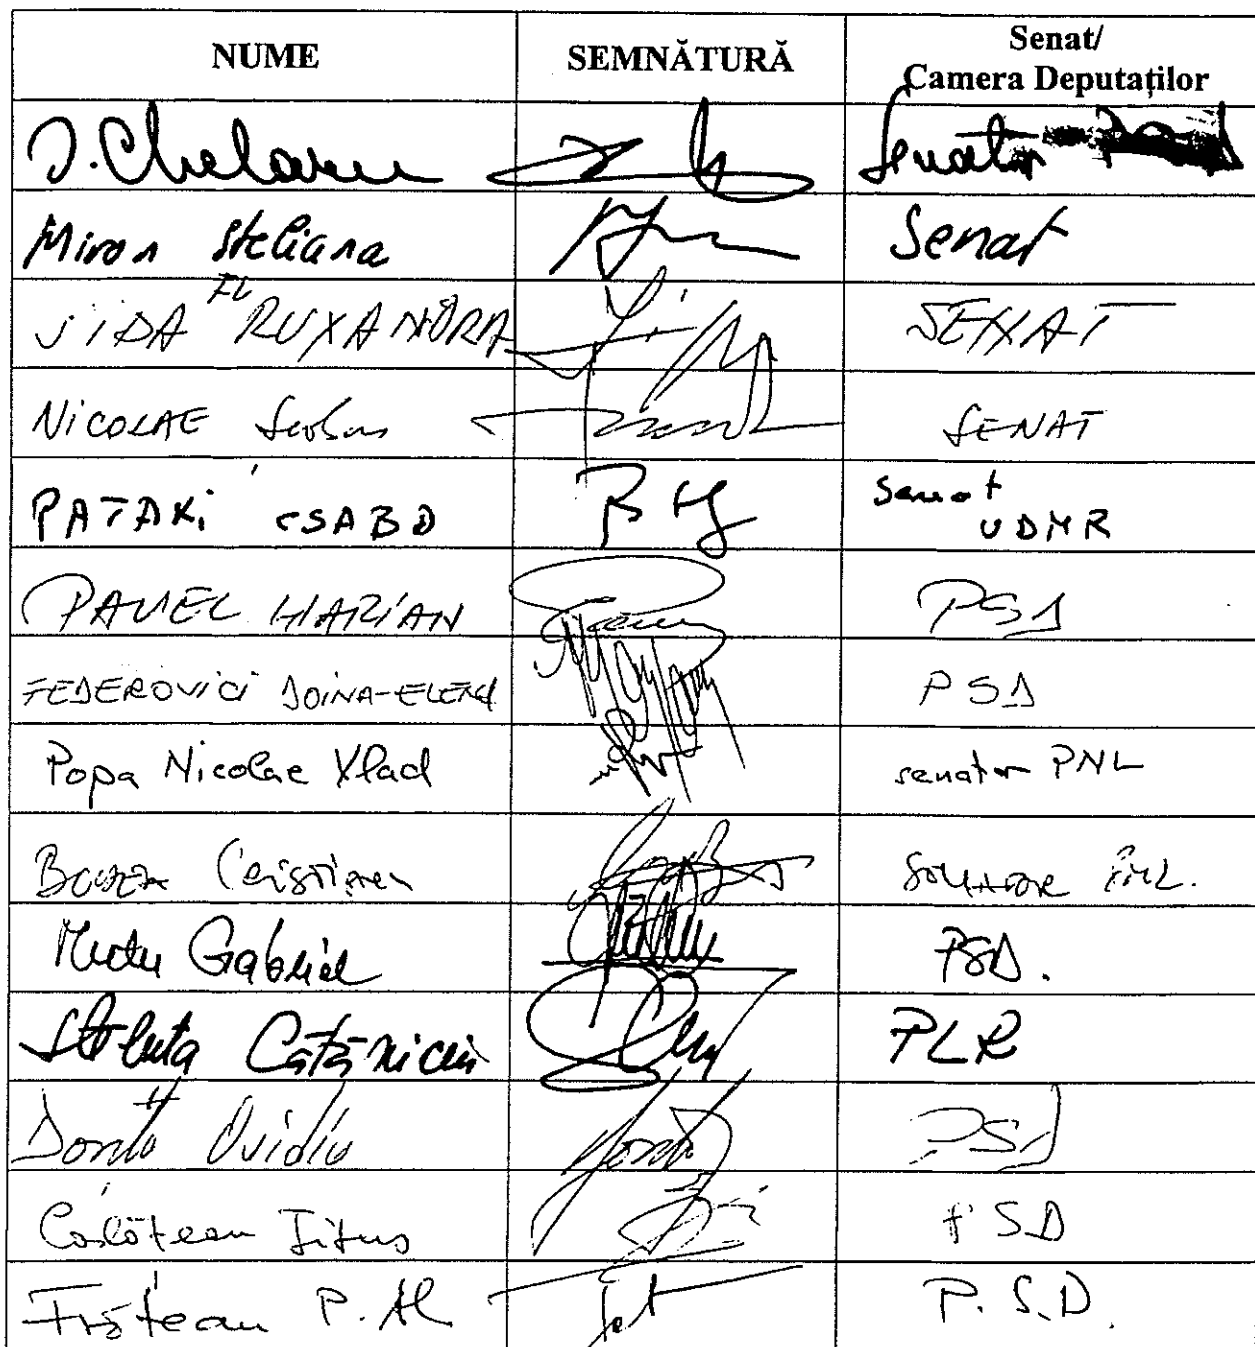 NUME SEMNĂTURĂ Senat/
Camera Deputaților
I. Chelaru Senator
Miron Steliana Senat
JIDA RUXANDRA SENAT
FL
NICOLAE Șerban SENAT
PATAKI CSABA Senat
UDMR
PAVEL MARIAN PSD
FEDEROVICI DOINA-ELENA PSD
Popa Nicolae Vlad senator PNL
Cristian PNL.
Mutu Gabriel PSD.
Cătăniciu PLR
Donțu Ovidiu PSD
Corlățean Titus PSD
Frățean P. Al P.S.D.